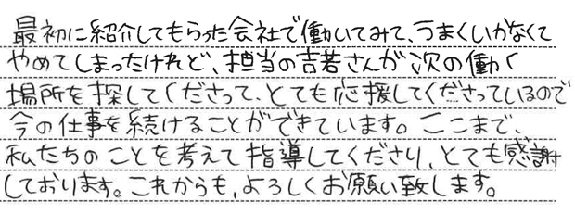 最初に紹介してもらった会社で働いてみて、うまくいかなくて
やめてしまったけれど、担当の吉若さんが次の働く
場所を探してくださって、とても応援してくださっているので
今の仕事を続けることができています。ここまで、
私たちのことを考えて指導してくださり、とても感謝
しております。これからも、よろしくお願い致します。